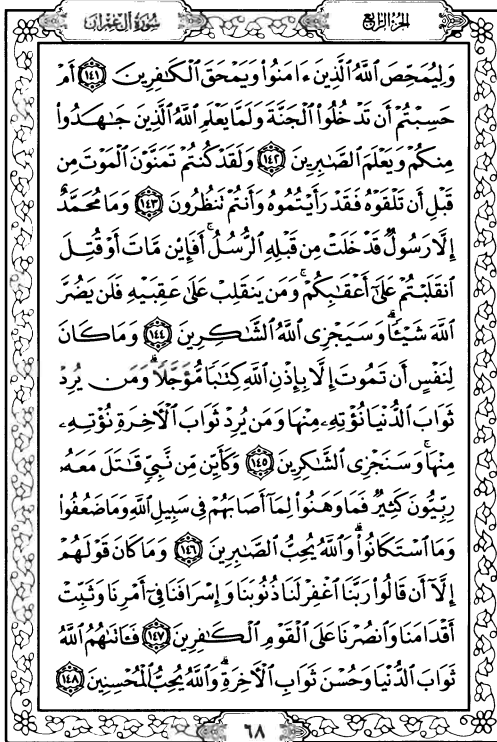 سُورَةُ آلِ عِمْرَانَ
الجُزْءُ الرَّابِعُ
وَلِيُمَحِّصَ اللَّهُ الَّذِينَ ءَامَنُوا۟ وَيَمْحَقَ الْكَٰفِرِينَ ١٤١ أَمْ
حَسِبْتُمْ أَن تَدْخُلُوا۟ الْجَنَّةَ وَلَمَّا يَعْلَمِ اللَّهُ الَّذِينَ جَٰهَدُوا۟
مِنكُمْ وَيَعْلَمَ الصَّٰبِرِينَ ١٤٢ وَلَقَدْ كُنتُمْ تَمَنَّوْنَ الْمَوْتَ مِن
قَبْلِ أَن تَلْقَوْهُ فَقَدْ رَأَيْتُمُوهُ وَأَنتُمْ تَنظُرُونَ ١٤٣ وَمَا مُحَمَّدٌ
إِلَّا رَسُولٌ قَدْ خَلَتْ مِن قَبْلِهِ الرُّسُلُ ۚ أَفَإِي۟ن مَّاتَ أَوْ قُتِلَ
انقَلَبْتُمْ عَلَىٰٓ أَعْقَٰبِكُمْ ۚ وَمَن يَنقَلِبْ عَلَىٰ عَقِبَيْهِ فَلَن يَضُرَّ
اللَّهَ شَيْـًٔا ۗ وَسَيَجْزِى اللَّهُ الشَّٰكِرِينَ ١٤٤ وَمَا كَانَ
لِنَفْسٍ أَن تَمُوتَ إِلَّا بِإِذْنِ اللَّهِ كِتَٰبًا مُّؤَجَّلًا ۗ وَمَن يُرِدْ
ثَوَابَ الدُّنْيَا نُؤْتِهِۦ مِنْهَا وَمَن يُرِدْ ثَوَابَ الْءَاخِرَةِ نُؤْتِهِۦ
مِنْهَا ۚ وَسَنَجْزِى الشَّٰكِرِينَ ١٤٥ وَكَأَيِّن مِّن نَّبِىٍّ قَٰتَلَ مَعَهُۥ
رِبِّيُّونَ كَثِيرٌ فَمَا وَهَنُوا۟ لِمَآ أَصَابَهُمْ فِى سَبِيلِ اللَّهِ وَمَا ضَعُفُوا۟
وَمَا اسْتَكَانُوا۟ ۗ وَاللَّهُ يُحِبُّ الصَّٰبِرِينَ ١٤٦ وَمَا كَانَ قَوْلَهُمْ
إِلَّآ أَن قَالُوا۟ رَبَّنَا اغْفِرْ لَنَا ذُنُوبَنَا وَإِسْرَافَنَا فِىٓ أَمْرِنَا وَثَبِّتْ
أَقْدَامَنَا وَانصُرْنَا عَلَى الْقَوْمِ الْكَٰفِرِينَ ١٤٧ فَـَٔاتَىٰهُمُ اللَّهُ
ثَوَابَ الدُّنْيَا وَحُسْنَ ثَوَابِ الْءَاخِرَةِ ۗ وَاللَّهُ يُحِبُّ الْمُحْسِنِينَ ١٤٨
٦٨